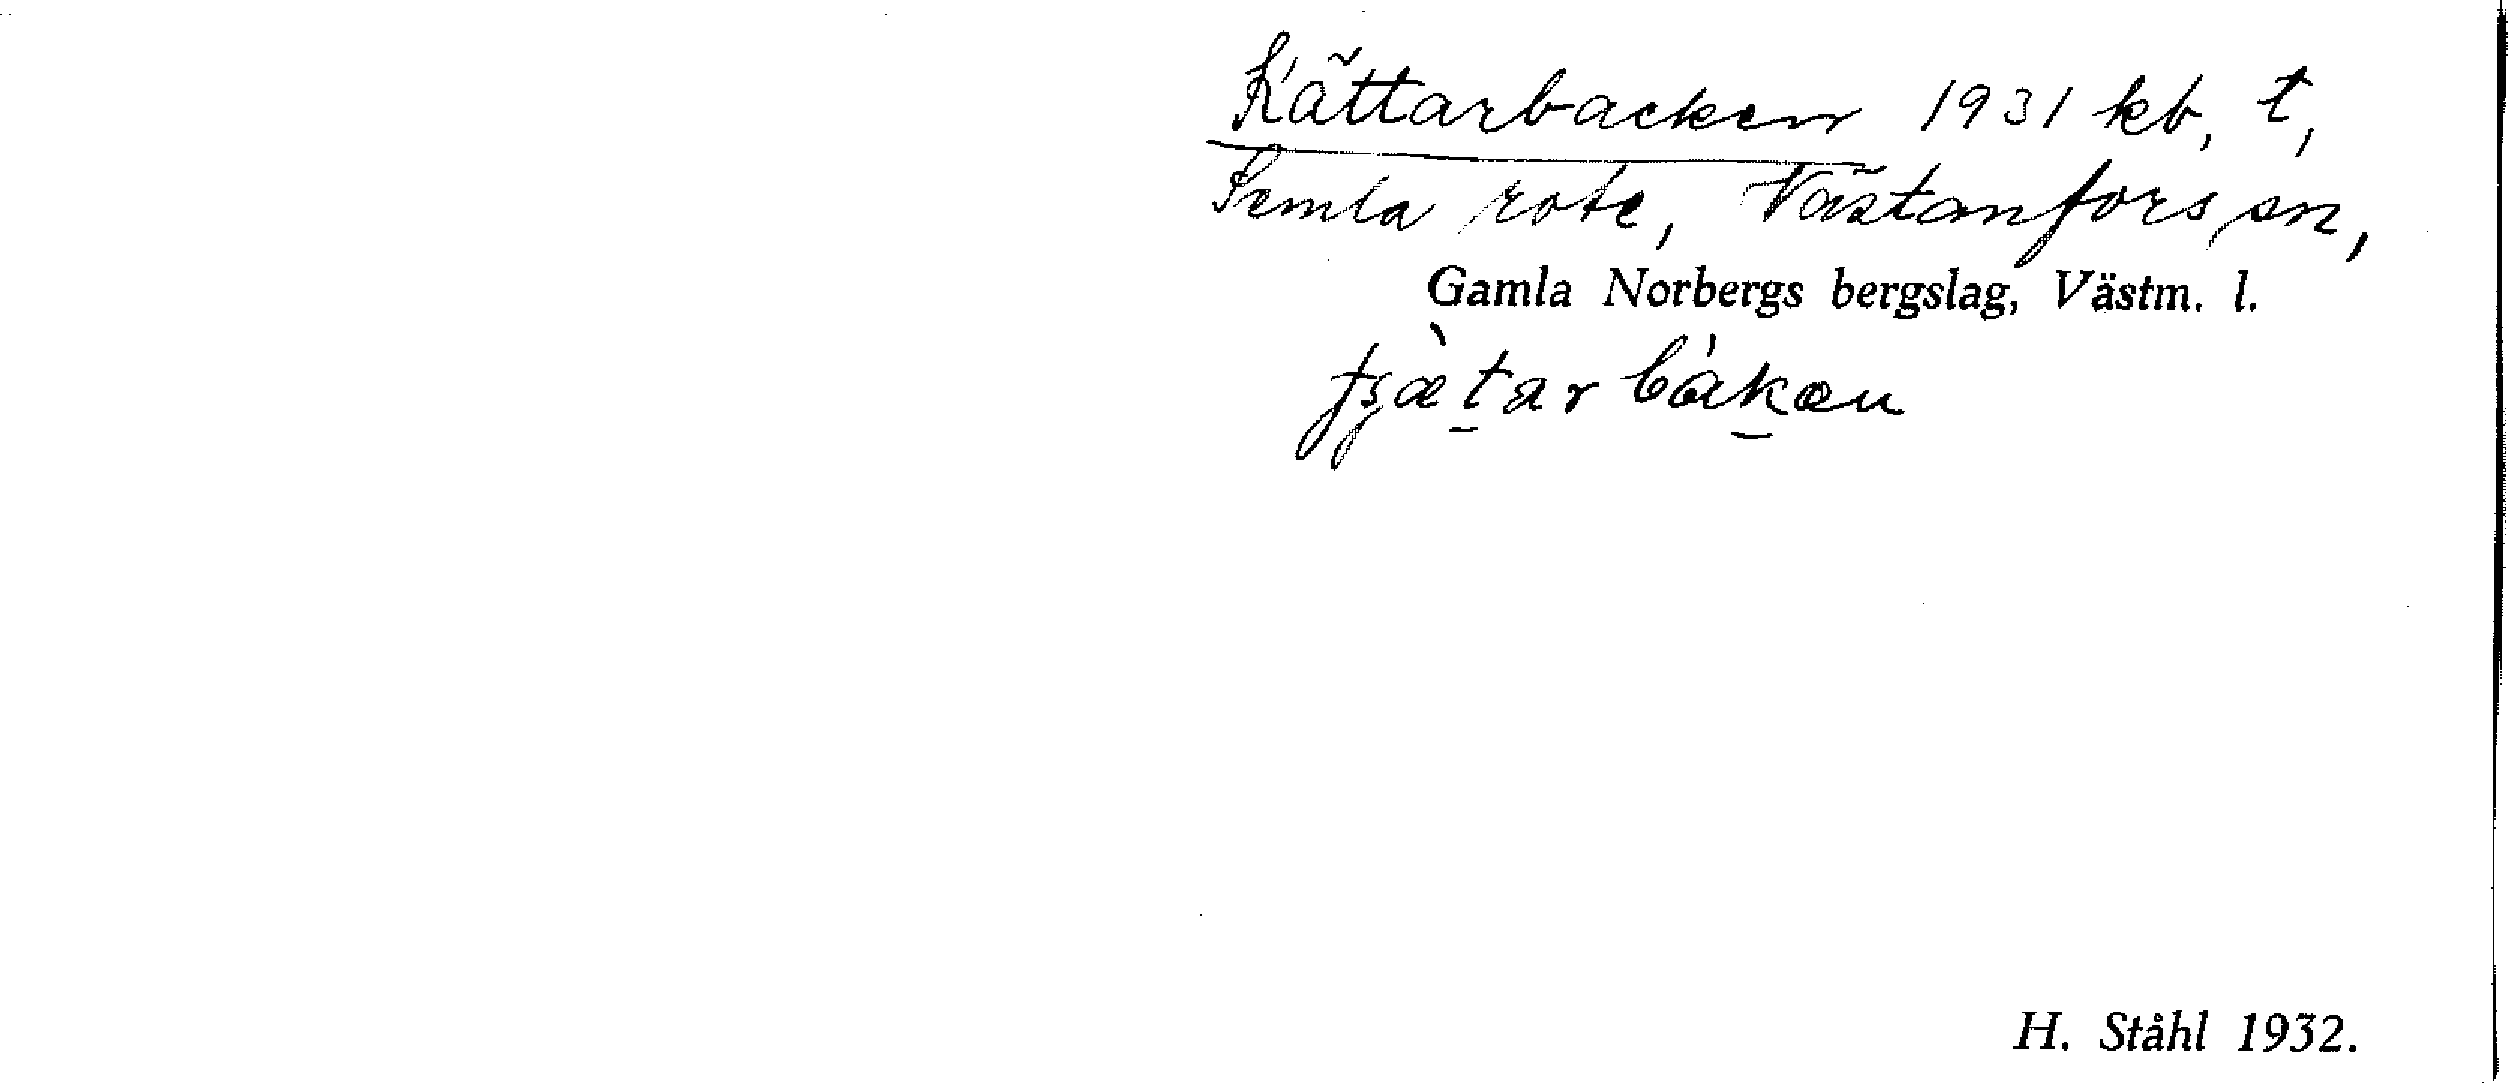 Kättarbacken 1931 kb, t,
Semla rote, Västanfors sn,
Gamla Norbergs bergslag, Västm. l.
H. Ståhl 1932.